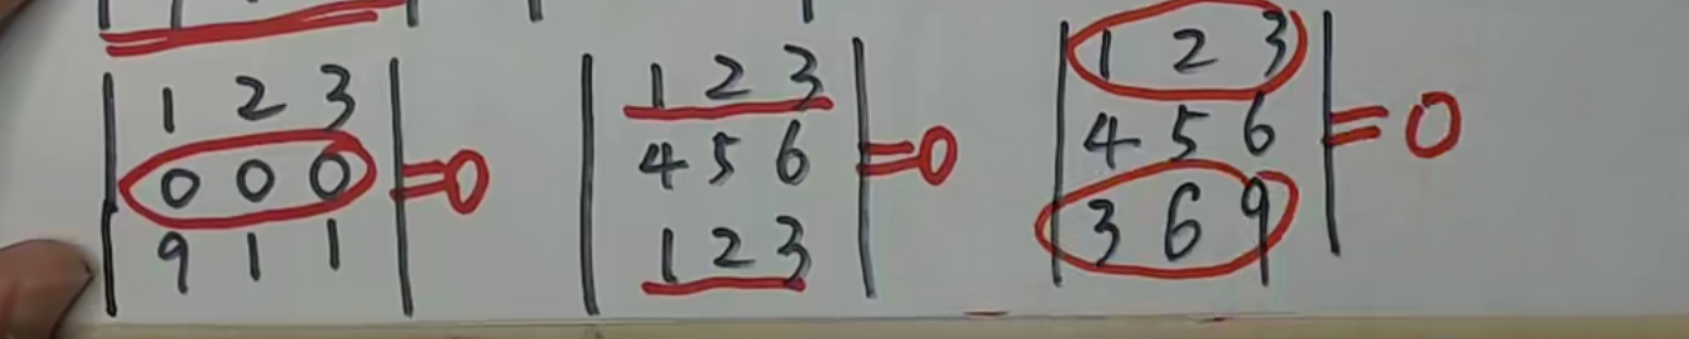 | 1 2 3 |
| 0 0 0 | = 0
| 9 1 1 |
| 1 2 3 |
| 4 5 6 | = 0
| 1 2 3 |
| 1 2 3 |
| 4 5 6 | = 0
| 3 6 9 |